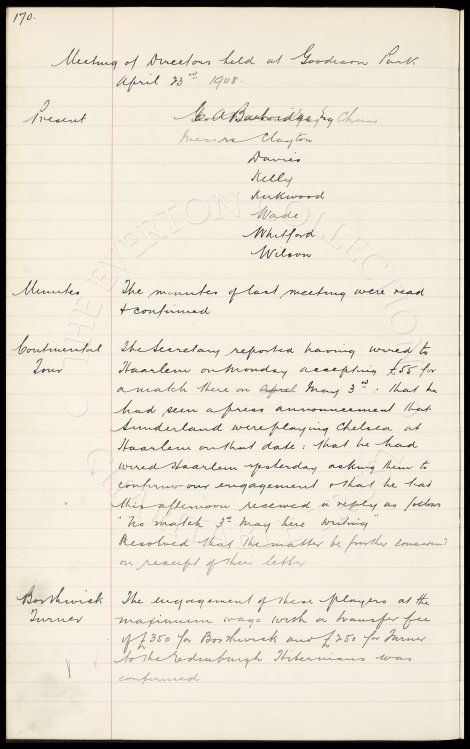 170.
Meeting of Directors held at Goodison Park
April 23rd 1908.
Present G. A Bainbridge Esq Chair
Messrs Clayton
Davies
Kelly
Kirkwood
Wade
Whitford
Wilson
Minutes The minutes of last meeting were read
& confirmed
Continental The Secretary reported having wired to
Tour Haarlem on Monday accepting £55 for
a match there on April May 3rd: that he
had seen a press announcement that
Sunderland were playing Chelsea at
Haarlem on that date: that he had
wired Haarlem yesterday asking them to
confirm our engagement & that he had
this afternoon received a reply as follows
"No match 3rd May here writing"
Resolved that the matter be further considered
on receipt of their letter
Borthwick The engagement of these players at the
Turner maximum wage with a transfer fee
of £350 for Borthwick and £250 for Turner
to the Edinburgh Hibernians was
confirmed
THE EVERTON COLLECTION